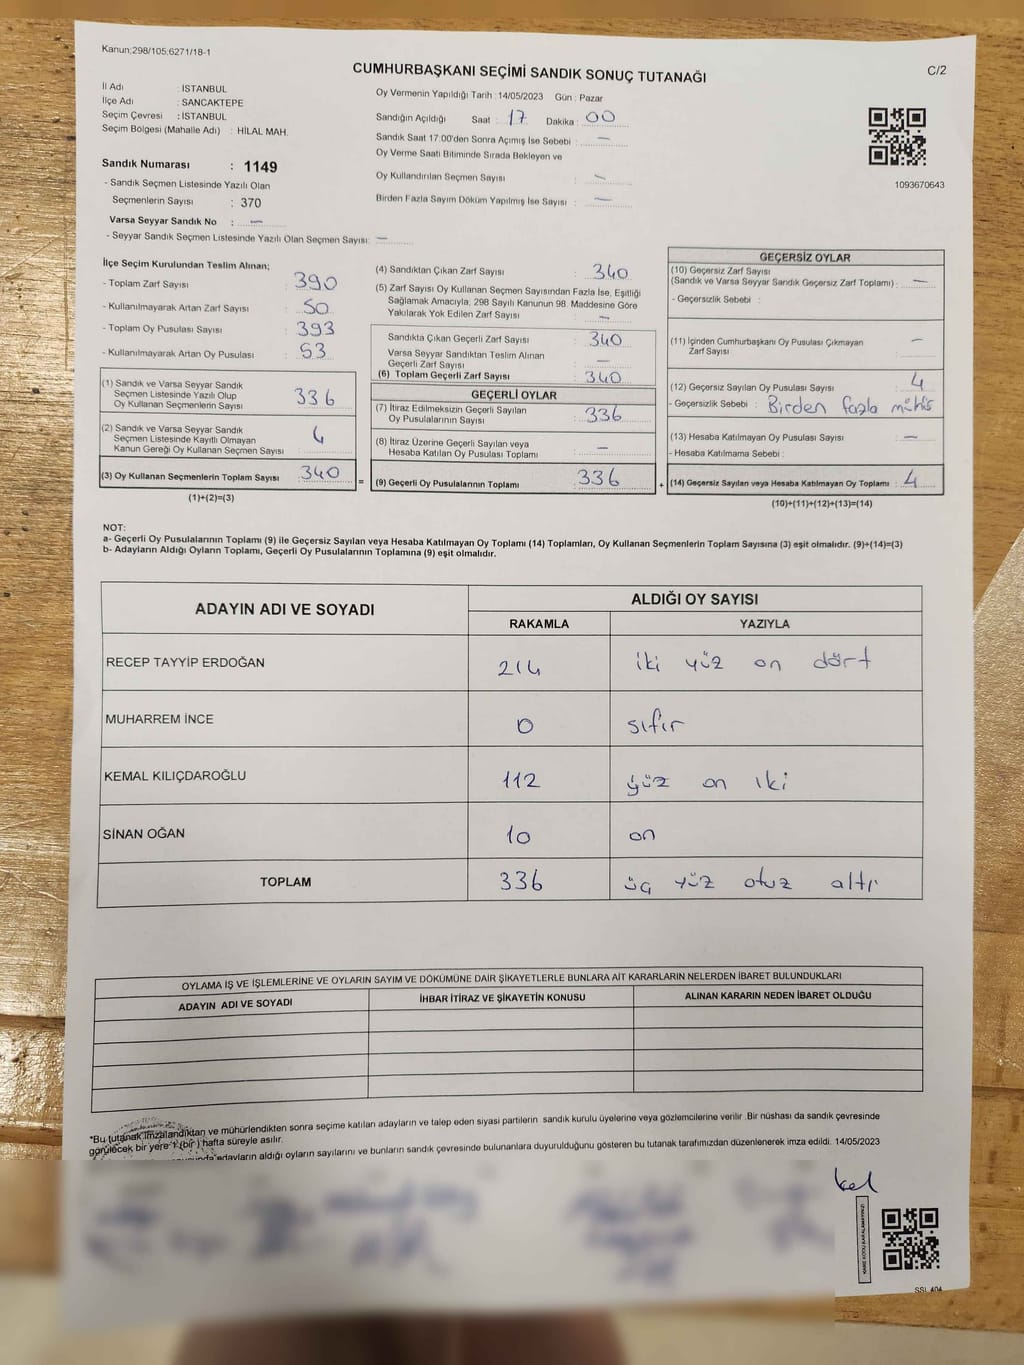 Kanun:298/105;6271/18-1
C/2
CUMHURBAŞKANI SEÇİMİ SANDIK SONUÇ TUTANAĞI
İl Adı : İSTANBUL
İlçe Adı : SANCAKTEPE
Seçim Çevresi : İSTANBUL
Seçim Bölgesi (Mahalle Adı) : HİLAL MAH.
Sandık Numarası : 1149
- Sandık Seçmen Listesinde Yazılı Olan
Seçmenlerin Sayısı : 370
Varsa Seyyar Sandık No : —
- Seyyar Sandık Seçmen Listesinde Yazılı Olan Seçmen Sayısı: —
Oy Vermenin Yapıldığı Tarih :14/05/2023 Gün : Pazar
Sandığın Açıldığı Saat : 17 Dakika : 00
Sandık Saat 17.00'den Sonra Açılmış İse Sebebi : —
Oy Verme Saati Bitiminde Sırada Bekleyen ve
Oy Kullandırılan Seçmen Sayısı : —
Birden Fazla Sayım Döküm Yapılmış İse Sayısı : —
1093670643
İlçe Seçim Kurulundan Teslim Alınan;
- Toplam Zarf Sayısı : 390
- Kullanılmayarak Artan Zarf Sayısı : 50
- Toplam Oy Pusulası Sayısı : 393
- Kullanılmayarak Artan Oy Pusulası : 53
(1) Sandık ve Varsa Seyyar Sandık
Seçmen Listesinde Yazılı Olup
Oy Kullanan Seçmenlerin Sayısı : 336
(2) Sandık ve Varsa Seyyar Sandık
Seçmen Listesinde Kayıtlı Olmayan
Kanun Gereği Oy Kullanan Seçmen Sayısı : 4
(3) Oy Kullanan Seçmenlerin Toplam Sayısı : 340 =
(1)+(2)=(3)
(4) Sandıktan Çıkan Zarf Sayısı : 340
(5) Zarf Sayısı Oy Kullanan Seçmen Sayısından Fazla İse, Eşitliği
Sağlamak Amacıyla; 298 Sayılı Kanunun 98. Maddesine Göre
Yakılarak Yok Edilen Zarf Sayısı : —
Sandıkta Çıkan Geçerli Zarf Sayısı : 340
Varsa Seyyar Sandıktan Teslim Alınan
Geçerli Zarf Sayısı : —
(6) Toplam Geçerli Zarf Sayısı : 340
GEÇERLİ OYLAR
(7) İtiraz Edilmeksizin Geçerli Sayılan
Oy Pusulalarının Sayısı : 336
(8) İtiraz Üzerine Geçerli Sayılan veya
Hesaba Katılan Oy Pusulası Toplamı : —
(9) Geçerli Oy Pusulalarının Toplamı : 336 +
GEÇERSİZ OYLAR
(10) Geçersiz Zarf Sayısı
(Sandık ve Varsa Seyyar Sandık Geçersiz Zarf Toplamı) : —
- Geçersizlik Sebebi :
(11) İçinden Cumhurbaşkanı Oy Pusulası Çıkmayan : —
Zarf Sayısı
(12) Geçersiz Sayılan Oy Pusulası Sayısı : 4
- Geçersizlik Sebebi : Birden fazla mühis
(13) Hesaba Katılmayan Oy Pusulası Sayısı : —
- Hesaba Katılmama Sebebi :
(14) Geçersiz Sayılan veya Hesaba Katılmayan Oy Toplamı : 4
(10)+(11)+(12)+(13)=(14)
NOT:
a- Geçerli Oy Pusulalarının Toplamı (9) ile Geçersiz Sayılan veya Hesaba Katılmayan Oy Toplamı (14) Toplamları, Oy Kullanan Seçmenlerin Toplam Sayısına (3) eşit olmalıdır. (9)+(14)=(3)
b- Adayların Aldığı Oyların Toplamı, Geçerli Oy Pusulalarının Toplamına (9) eşit olmalıdır.
ADAYIN ADI VE SOYADI ALDIĞI OY SAYISI
RAKAMLA YAZIYLA
RECEP TAYYİP ERDOĞAN 214 iki yüz on dört
MUHARREM İNCE 0 sıfır
KEMAL KILIÇDAROĞLU 112 yüz on iki
SİNAN OĞAN 10 on
TOPLAM 336 üç yüz otuz altı
OYLAMA İŞ VE İŞLEMLERİNE VE OYLARIN SAYIM VE DÖKÜMÜNE DAİR ŞİKAYETLERLE BUNLARA AİT KARARLARIN NELERDEN İBARET BULUNDUKLARI
ADAYIN ADI VE SOYADI İHBAR İTİRAZ VE ŞİKAYETİN KONUSU ALINAN KARARIN NEDEN İBARET OLDUĞU
*Bu tutanak imzalandıktan ve mühürlendikten sonra seçime katılan adayların ve talep eden siyasi partilerin sandık kurulu üyelerine veya gözlemcilerine verilir .Bir nüshası da sandık çevresinde
görülecek bir yere 1 (bir ) hafta süreyle asılır.
adayların aldığı oyların sayılarını ve bunların sandık çevresinde bulunanlara duyurulduğunu gösteren bu tutanak tarafımızdan düzenlenerek imza edildi. 14/05/2023
KARE KODU KARALAMAYINIZ!